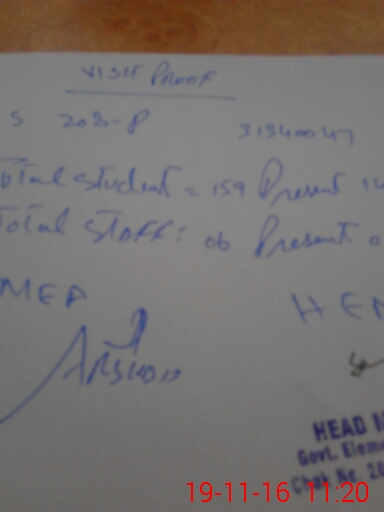 VISIT PROOF
S 203-P 31340047
Total student = 159 Present
Total Staff: 06 Present
MEA HE
Arshad
HEAD M
Govt. Eleme
Chak No. 20
19-11-16 11:20